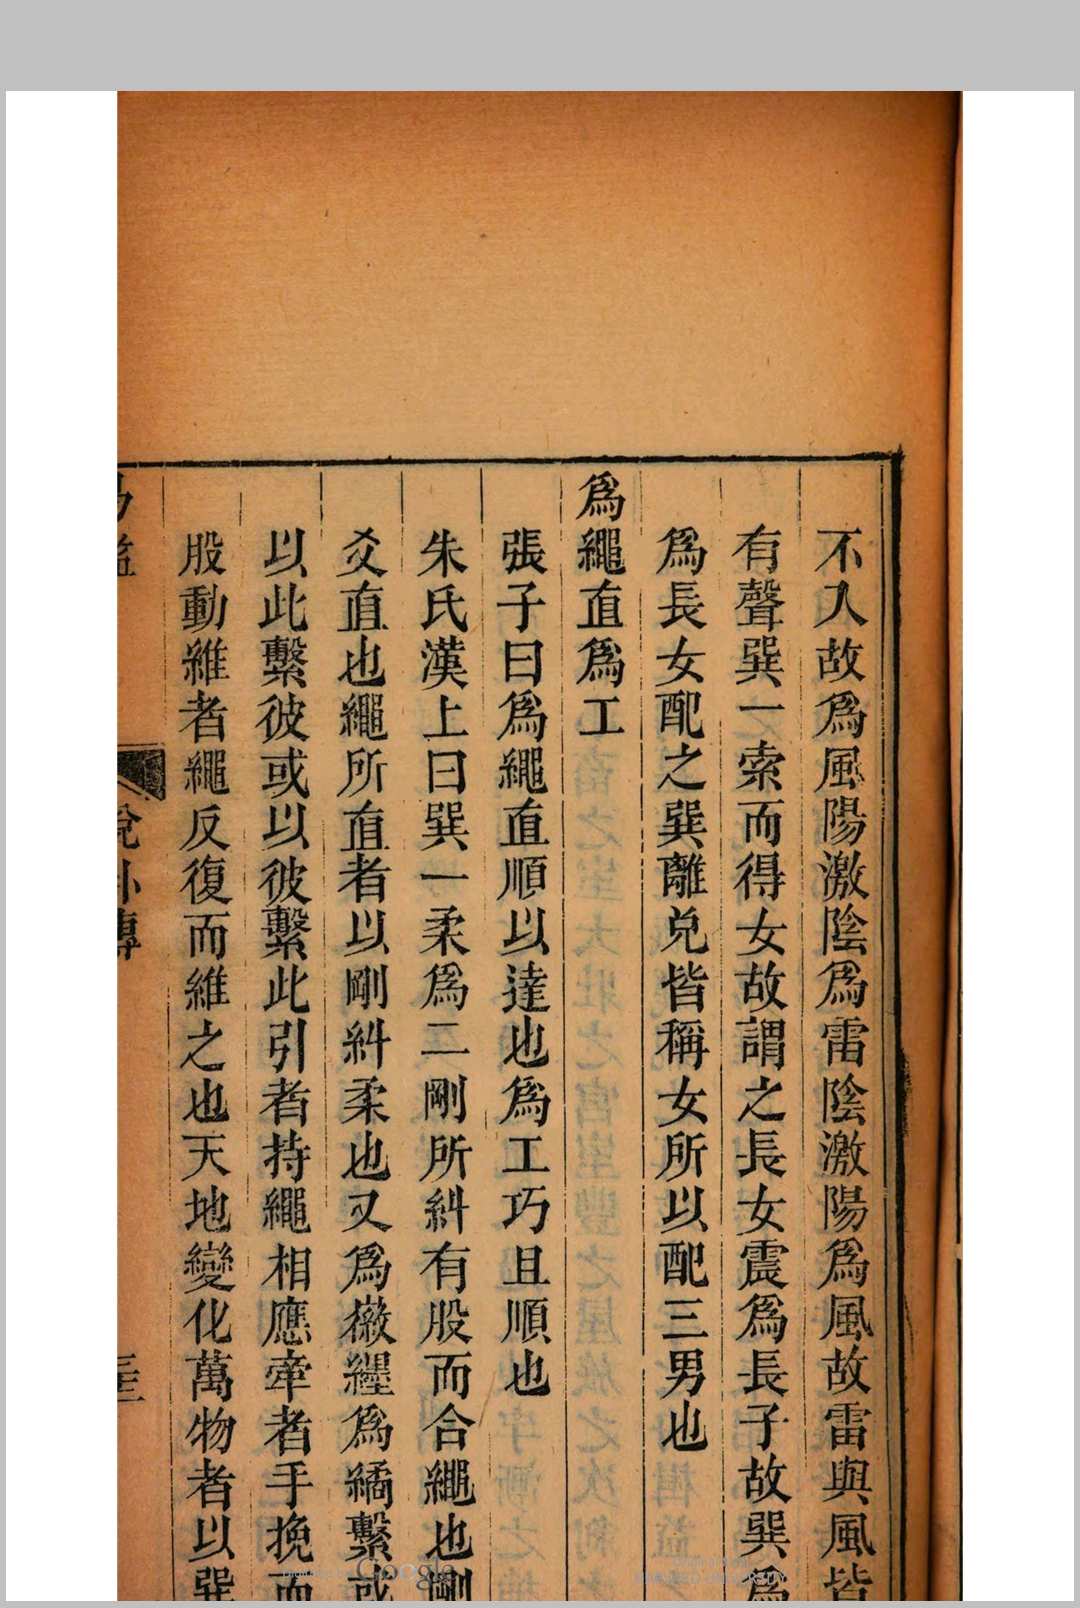 不入故為風陽激陰為雷陰激陽為風故雷與風皆
有聲巽一索而得女故謂之長女震為長子故巽為
為長女配之巽離兌皆稱女所以配三男也
為繩直為工
張子曰為繩直順以達也為工巧且順也
朱氏漢上曰巽一柔為二剛所糾有股而合繩也剛
爻直也繩所直者以剛糾柔也又為徽纆為繘繫或
以此繫彼或以彼繫此引者持繩相應牽者手挽而
股動維者繩反復而維之也天地變化萬物者以巽
說卦傳
Google